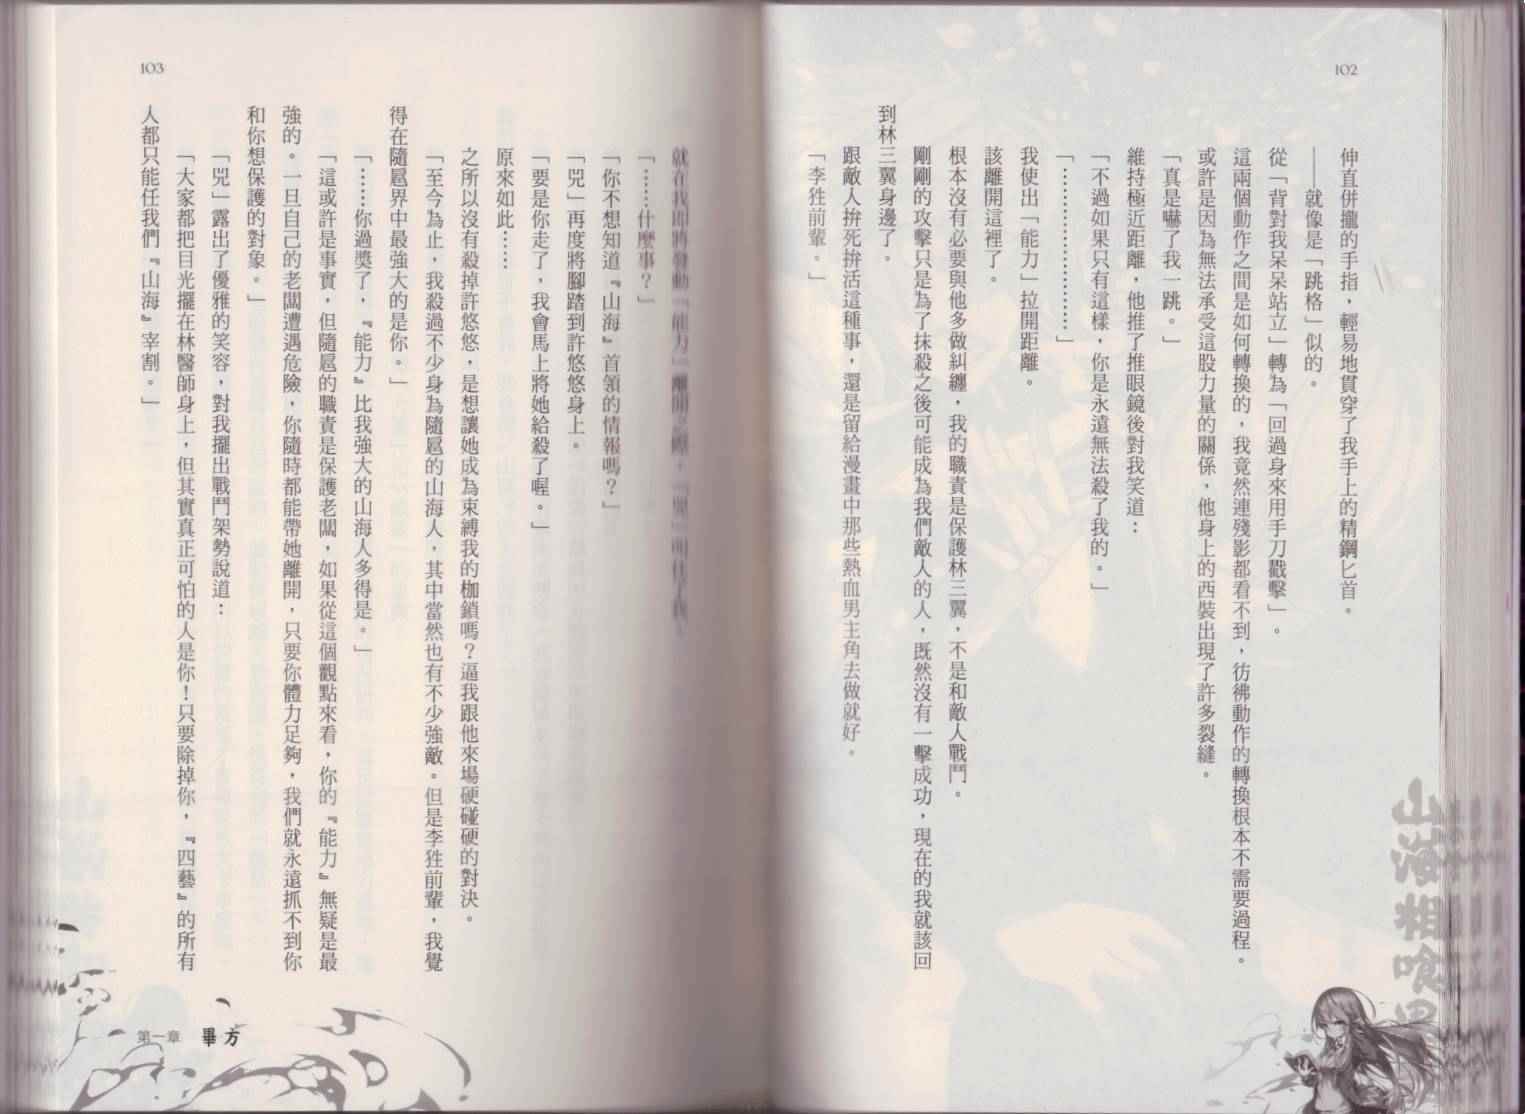 102
伸直併攏的手指，輕易地貫穿了我手上的精鋼匕首。
——就像是「跳格」似的。
從「背對我呆呆站立」轉為「回過身來用手刀戳擊」。
這兩個動作之間是如何轉換的，我竟然連殘影都看不到，彷彿動作的轉換根本不需要過程。
或許是因為無法承受這股力量的關係，他身上的西裝出現了許多裂縫。
「真是嚇了我一跳。」
維持極近距離，他推了推眼鏡後對我笑道：
「不過如果只有這樣，你是永遠無法殺了我的。」
「…………………」
我使出「能力」拉開距離。
該離開這裡了。
根本沒有必要與他多做糾纏，我的職責是保護林三翼，不是和敵人戰鬥。
剛剛的攻擊只是為了抹殺之後可能成為我們敵人的人，既然沒有一擊成功，現在的我就該回
到林三翼身邊了。
跟敵人拚死拚活這種事，還是留給漫畫中那些熱血男主角去做就好。
「李狌前輩。」
山海相喰異
103
就在我即將發動「能力」離開之際，「兕」叫住了我。
「……什麼事？」
「你不想知道『山海』首領的情報嗎？」
「兕」再度將腳踏到許悠悠身上。
「要是你走了，我會馬上將她給殺了喔。」
原來如此……
之所以沒有殺掉許悠悠，是想讓她成為束縛我的枷鎖嗎？逼我跟他來場硬碰硬的對決。
「至今為止，我殺過不少身為隨扈的山海人，其中當然也有不少強敵。但是李狌前輩，我覺
得在隨扈界中最強大的是你。」
「……你過獎了，『能力』比我強大的山海人多得是。」
「這或許是事實，但隨扈的職責是保護老闆，如果從這個觀點來看，你的『能力』無疑是最
強的。一旦自己的老闆遭遇危險，你隨時都能帶她離開，只要你體力足夠，我們就永遠抓不到你
和你想保護的對象。」
「兕」露出了優雅的笑容，對我擺出戰鬥架勢說道：
「大家都把目光擺在林醫師身上，但其實真正可怕的人是你！只要除掉你，『四藝』的所有
人都只能任我們『山海』宰割。」
第一章 畢方